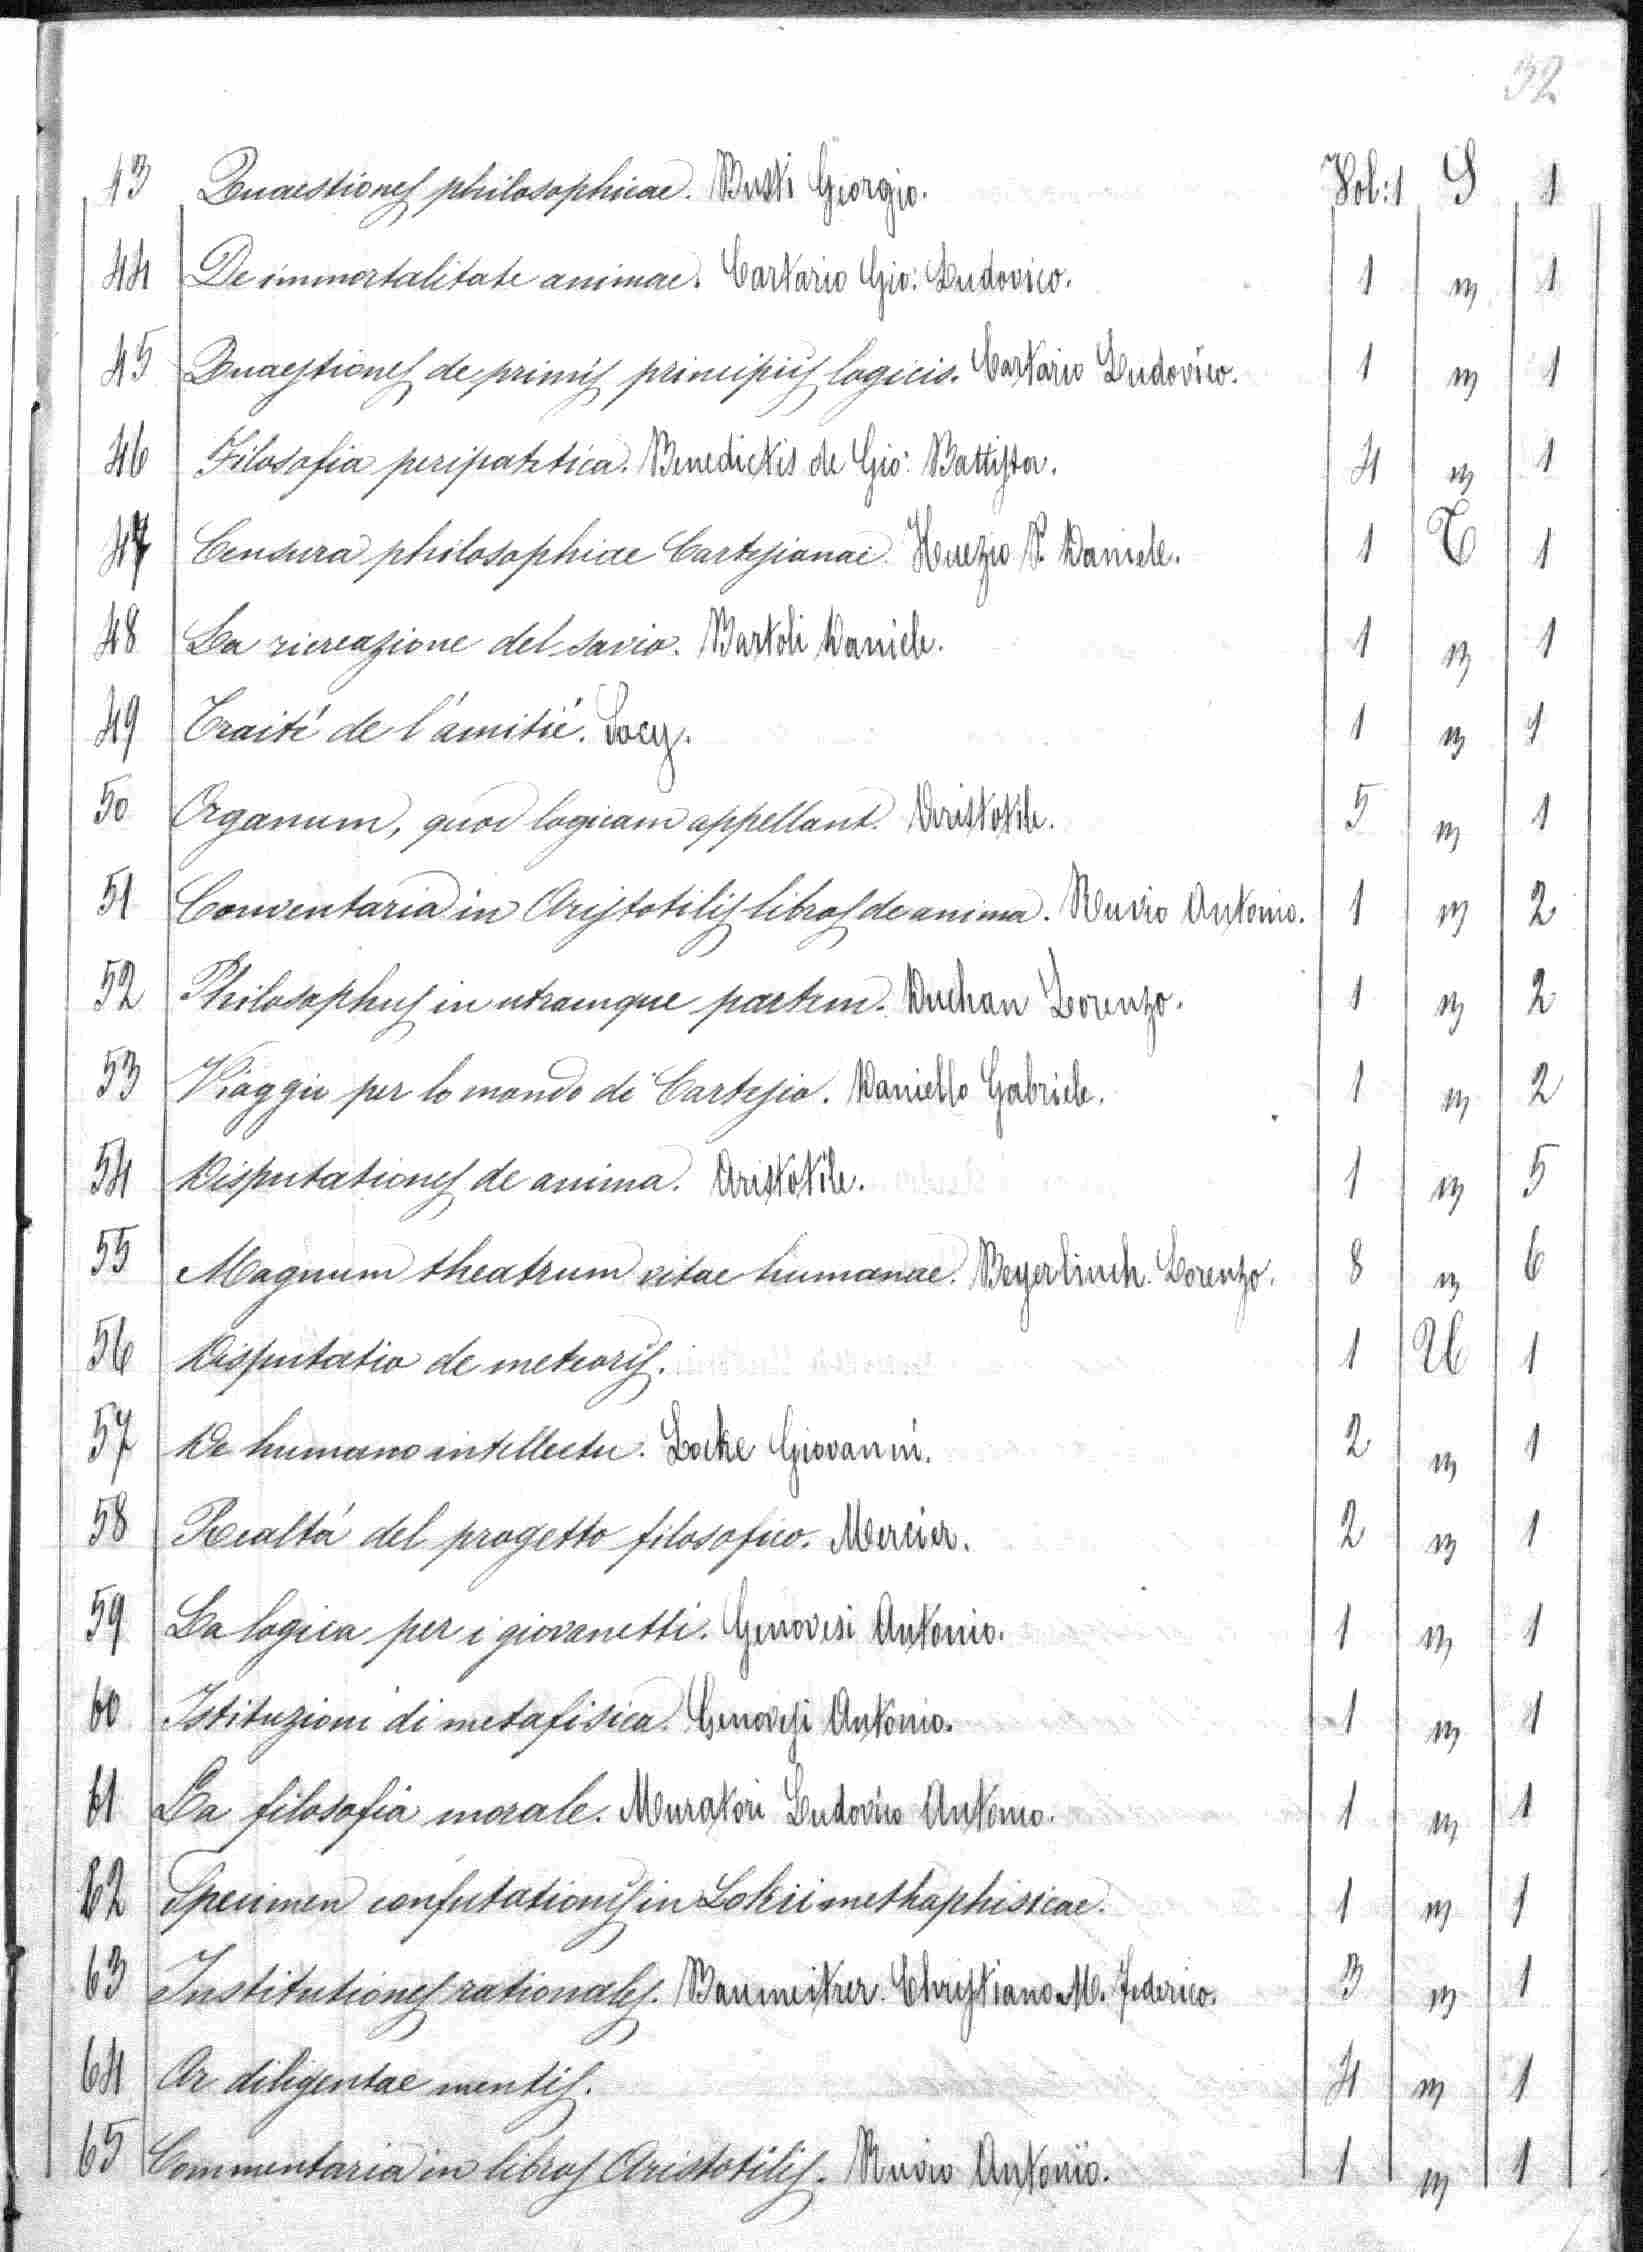 32
43 Quaestiones philosophicae. Busti Georgio. Vol: 1 S 1
44 De immortalitate animae. Cartario Gio: Ludovico. 1 " 1
45 Quaestiones de primis principiis logicis. Cartario Ludovico. 1 " 1
46 Filosofia peripatetica. Benedictis de Gio: Battista. 4 " 1
47 Censura philosophiae Cartesianae. Huezio P. Daniele. 1 T 1
48 La ricreazione del savio. Bartoli Daniele. 1 " 1
49 Traité de l'amitié. Sacy. 1 " 1
50 Organum, quod logicam appellant. Aristotile. 5 " 1
51 Conventaria in Aristotilis libros de anima. Ruvio Antonio. 1 " 2
52 Philosophus in utramque partem. Duchan Lorenzo. 1 " 2
53 Viaggio per lo mondo di Cartesio. Daniello Gabriele. 1 " 2
54 Disputationes de anima. Aristotile. 1 " 5
55 Magnum theatrum vitae humanae. Beyerlinch. Lorenzo. 8 " 6
56 Disputatio de meteoris. 1 U 1
57 De humano intellectu. Locke Giovanni. 2 " 1
58 Realtá del progetto filosofico. Mercier. 2 " 1
59 La logica per i giovanetti. Genovesi Antonio. 1 " 1
60 Istituzioni di metafisica. Genovesi Antonio. 1 " 1
61 La filosofia morale. Muratori Ludovico Antonio. 1 " 1
62 Specimen confutationis in Lokii methaphisicae. 1 " 1
63 Institutiones rationales. Baumeitrer. Christiano M. Federico. 3 " 1
64 Ar diligentae mentis. 4 " 1
65 Commentaria in libros Aristotilis. Ruvio Antonio. 1 " 1